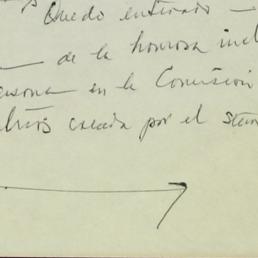 Quedo enterado —
— de la honrosa incl
ersona en la Comisión
creada por el